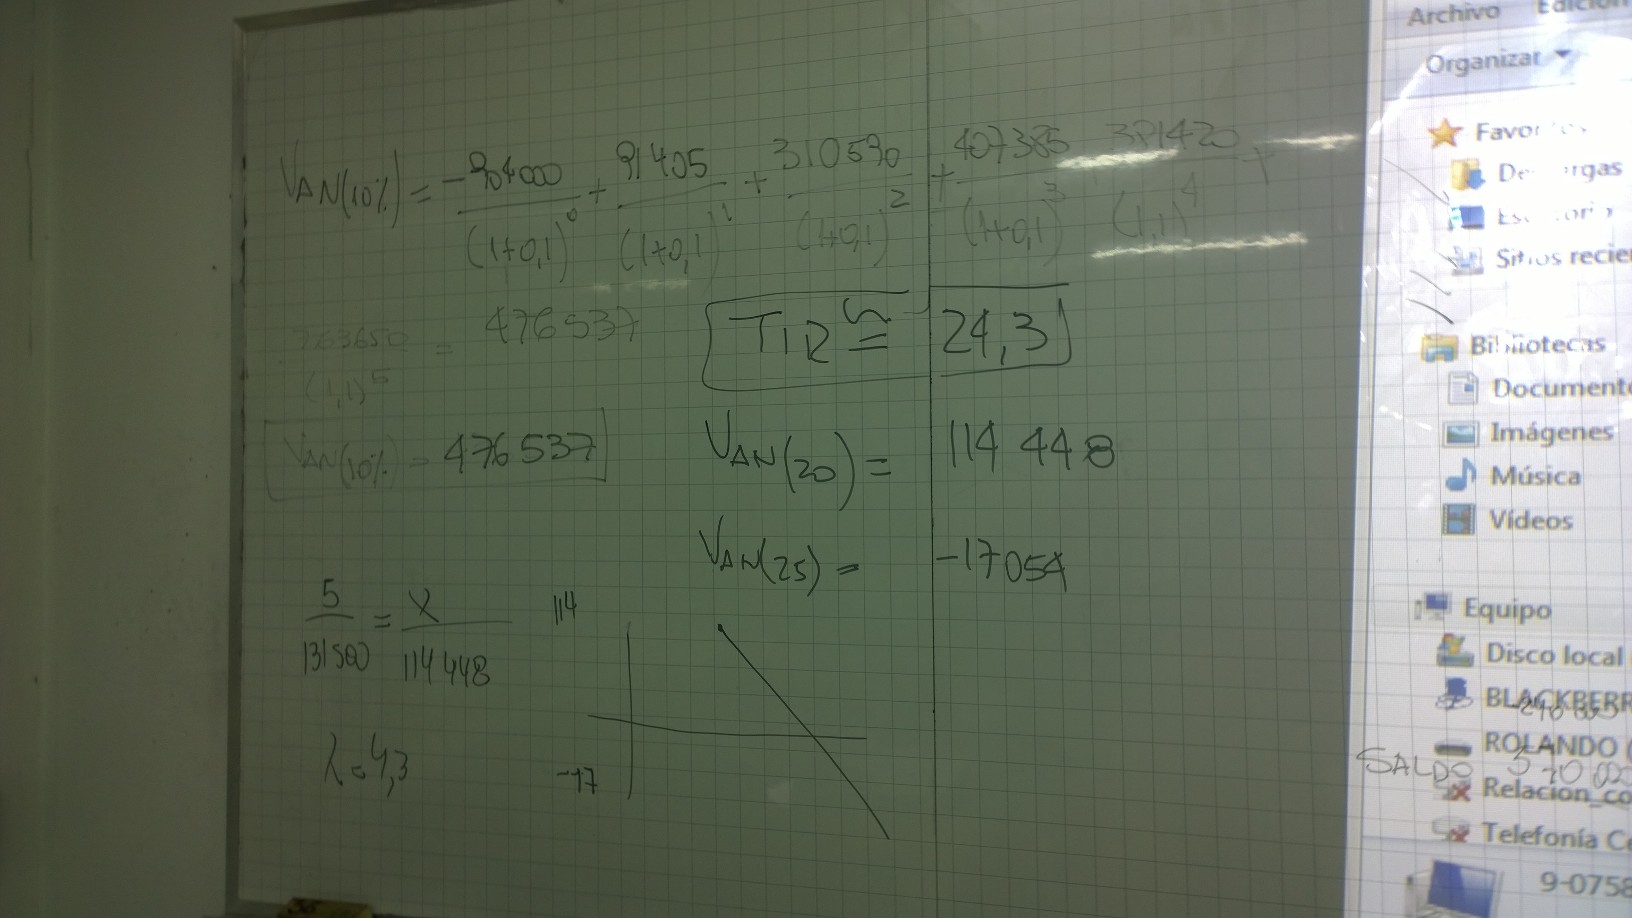 VAN(10%) = -904000/(1+0,1)^0 + 91405/(1+0,1)^1 + 310590/(1+0,1)^2 + 407385/(1+0,1)^3 + 371420/(1,1)^4 +
763650/(1,1)^5 = 476537
TIR ≅ 24,3
VAN(10%) = 476537
VAN(20) = 114 448
VAN(25) = -17054
5/131500 = X/114448
114
X=4,3
-17
Archivo Edición
Organizar
Favor
De rgas
Sitios recie
Bibliotecas
Documento
Imágenes
Música
Vídeos
Equipo
Disco local
BLACKBERR
ROLANDO (
SALDO
Relacion_co
Telefonía Ce
9-0758